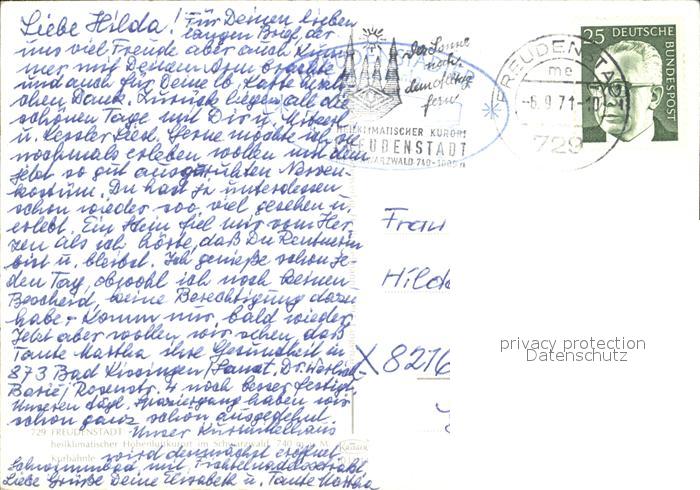 Liebe Hilda! Für Deinen lieben
langen Brief, der
uns viel Freude aber auch Kum-
mer mit Deinem Arm brachte
und auch für Deine lb. Karte herzli-
chen Dank. Zurück liegen all die
schönen Tage mit Dir u.
u. Kessler Liesl. Gerne möchte ich sie
nochmals erleben wollen mit dem
jetzt so gut
kostüm. Du hast ja unterdessen
schon wieder soo viel gesehen u.
erlebt. Ein Stein fiel mir vom Her-
zen als ich hörte, daß Du Rentnerin
bist u. bleibst. Ich genieße schon je-
den Tag, obwohl ich noch keinen
Bescheid, keine Berechtigung dazu
habe. Komm nur bald wieder.
Jetzt aber wollen wir sehen, daß
Tante Martha ihre Gesundheit in
873 Bad Kissingen/Sanat. Dr.
Rosenstr. 4 noch besser festigt.
Unseren tägl. Spaziergang haben wir
schon ganz schön ausgedehnt.
Unser Kurmittelhaus
wird demnächst eröffnet
Schwimmbad mit
Liebe Grüße Deine Elisabeth u. Tante Martha
729 FREUDENSTADT
heilklimatischer Höhenluftkurort im Schwarzwald, 740 m ü. M.
Kurbähnle
Der Sonne
nach
dem Alltag
fern!
HEILKLIMATISCHER KURORT
FREUDENSTADT
SCHWARZWALD 740-1000 M
FREUDENSTADT
me
-6.9.71-10
729
25 DEUTSCHE
BUNDESPOST
Frau
Hild
X 8216
privacy protection
Datenschutz